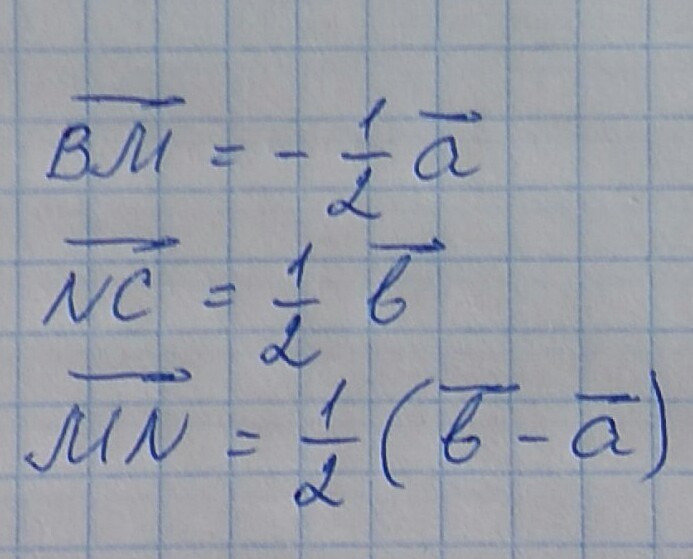 $\overrightarrow{BM} = -\frac{1}{2}\vec{a}$
$\overrightarrow{NC} = \frac{1}{2}\vec{b}$
$\overrightarrow{MN} = \frac{1}{2}(\vec{b} - \vec{a})$